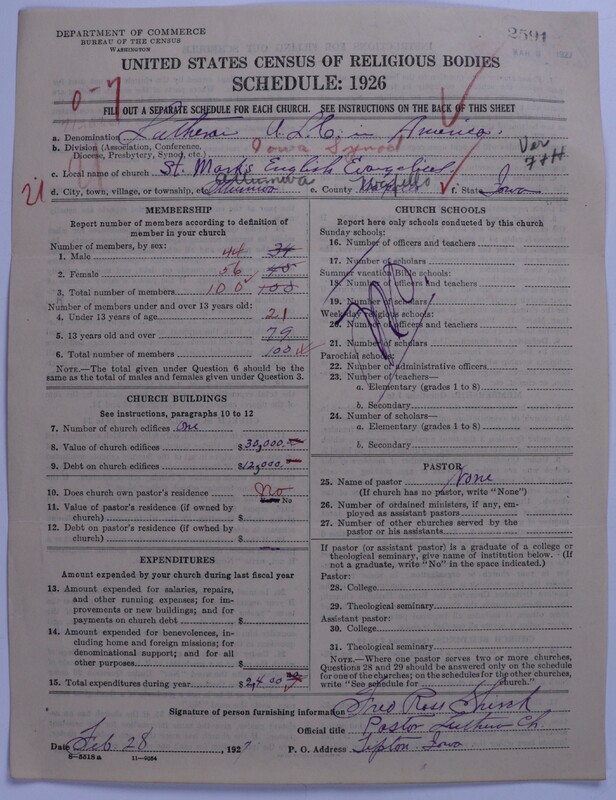 DEPARTMENT OF COMMERCE
BUREAU OF THE CENSUS
WASHINGTON
2591
UNITED STATES CENSUS OF RELIGIOUS BODIES
SCHEDULE: 1926
0-7
FILL OUT A SEPARATE SCHEDULE FOR EACH CHURCH. SEE INSTRUCTIONS ON THE BACK OF THIS SHEET
a. Denomination Lutheran U.L.C. in America.
b. Division (Association, Conference, Diocese, Presbytery, Synod, etc.) Iowa Synod
Ver 7+H
c. Local name of church St. Mark's English Evangelical
21
d. City, town, village, or township, etc. Ottumwa e. County Wapello f. State Iowa
MEMBERSHIP
Report number of members according to definition of
member in your church
Number of members, by sex:
1. Male 44
2. Female 56
3. Total number of members 100 100
Number of members under and over 13 years old:
4. Under 13 years of age 21
5. 13 years old and over 79
6. Total number of members 100
NOTE.—The total given under Question 6 should be
the same as the total of males and females given under Question 3.
CHURCH BUILDINGS
See instructions, paragraphs 10 to 12
7. Number of church edifices one
8. Value of church edifices $30,000.
9. Debt on church edifices $12,000.
10. Does church own pastor's residence No
No
11. Value of pastor's residence (if owned by
church) $
12. Debt on pastor's residence (if owned by
church) $
EXPENDITURES
Amount expended by your church during last fiscal year
13. Amount expended for salaries, repairs,
and other running expenses; for im-
provements or new buildings; and for
payments on church debt $
14. Amount expended for benevolences,
including home and foreign missions; for
denominational support; and for all
other purposes $
15. Total expenditures during year $2,400
CHURCH SCHOOLS
Report here only schools conducted by this church
Sunday schools:
16. Number of officers and teachers
17. Number of scholars
Summer vacation Bible schools:
18. Number of officers and teachers
19. Number of scholars
Weekday religious schools:
20. Number of officers and teachers
21. Number of scholars
Parochial schools:
22. Number of administrative officers
23. Number of teachers—
a. Elementary (grades 1 to 8)
b. Secondary
24. Number of scholars—
a. Elementary (grades 1 to 8)
b. Secondary
No.
PASTOR
25. Name of pastor None
(If church has no pastor, write "None")
26. Number of ordained ministers, if any, em-
ployed as assistant pastors
27. Number of other churches served by the
pastor or his assistants
If pastor (or assistant pastor) is a graduate of a college or
theological seminary, give name of institution below. (If
not a graduate, write "No" in the space indicated.)
Pastor:
28. College
29. Theological seminary
Assistant pastor:
30. College
31. Theological seminary
NOTE.—Where one pastor serves two or more churches,
Questions 28 and 29 should be answered only on the schedule
for one of the churches; on the schedules for the other churches,
write "See schedule for church."
Signature of person furnishing information Fred Ross Shirck
Official title Pastor Lutheran Ch.
Date Feb. 28, 1927 P. O. Address Tipton Iowa
8-5518a 11-9054